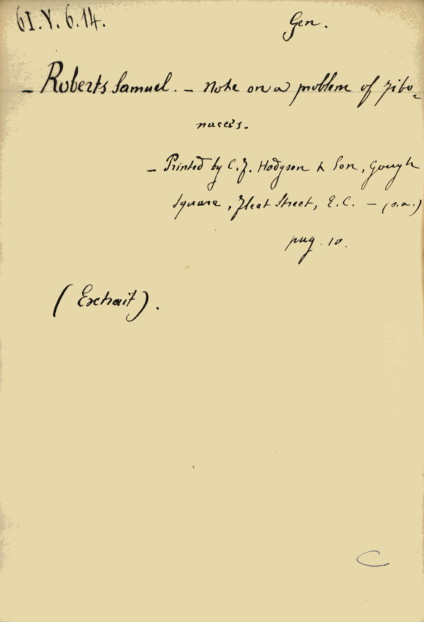 61.V.6.14.
Gen.
- Roberts Samuel. - Note on a problem of Fibo-
nacci's.
- Printed by C.F. Hodgson & Son, Gough
Square, Fleet Street, E.C. - (s.a.)
pag. 10.
(Extrait).
C